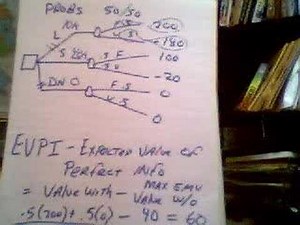 PROBS 50/50
F .5 200
L U .5 -180
S .5 F 100
.5 U -20
DN 0 F .5 0
U .5 0
EVPI - EXPECTED VALUE OF
PERFECT INFO
= VALUE WITH - MAX EMV
VALUE W/O
.5(200) + .5(0) - 40 = 60